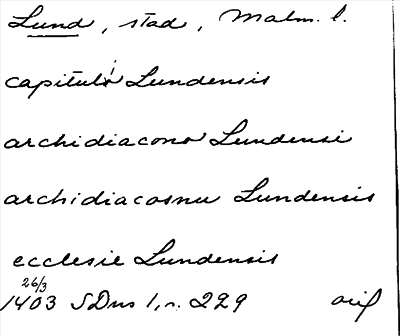 Lund, stad, Malm. l.
capituli Lundensis
archidiacono Lundensi
archidiacosnu Lundensis
ecclesie Lundensis
26/3
1403 SDns 1, n. 229 orig